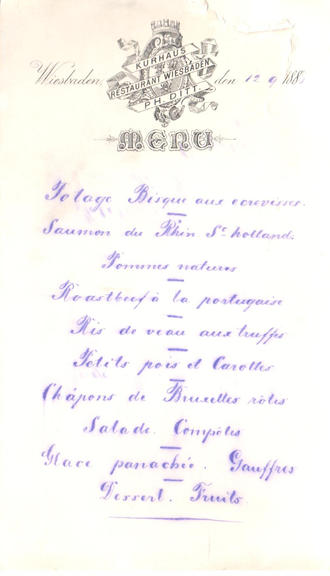 KURHAUS
RESTAURANT WIESBADEN
PH. DITT.
Wiesbaden, den 12 9 188
MENU
Potage Bisque aux ecrevisses.
Saumon du Rhin Sce holland.
Pommes natures
Roastbeef à la portugaise
Ris de veau aux truffes
Petits pois et Carottes
Châpons de Bruxelles rôtes
Salade. Compotes
Glace panachée. Gauffres
Dessert. Fruits.